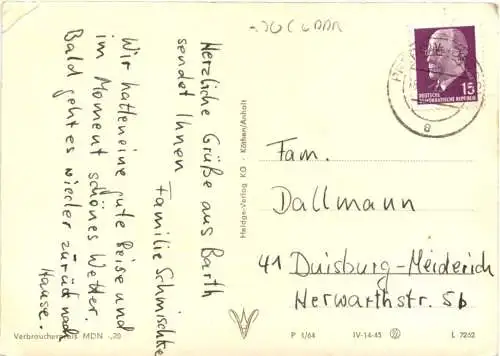 Herzliche Grüße aus Barth
sendet Ihnen
Familie Schmischke
Wir hatten eine gute Reise und
im Moment schönes Wetter.
Bald geht es wieder zurück nach
Hause.
Verbraucherpreis MDN -,20
Heldge-Verlag KG - Köthen/Anhalt
DEUTSCHE
DEMOKRATISCHE REPUBLIK
15
a
Fam.
Dallmann
41 Duisburg-Meiderich
Herwarthstr. 5b
P 1/64
IV-14-45
L 7262